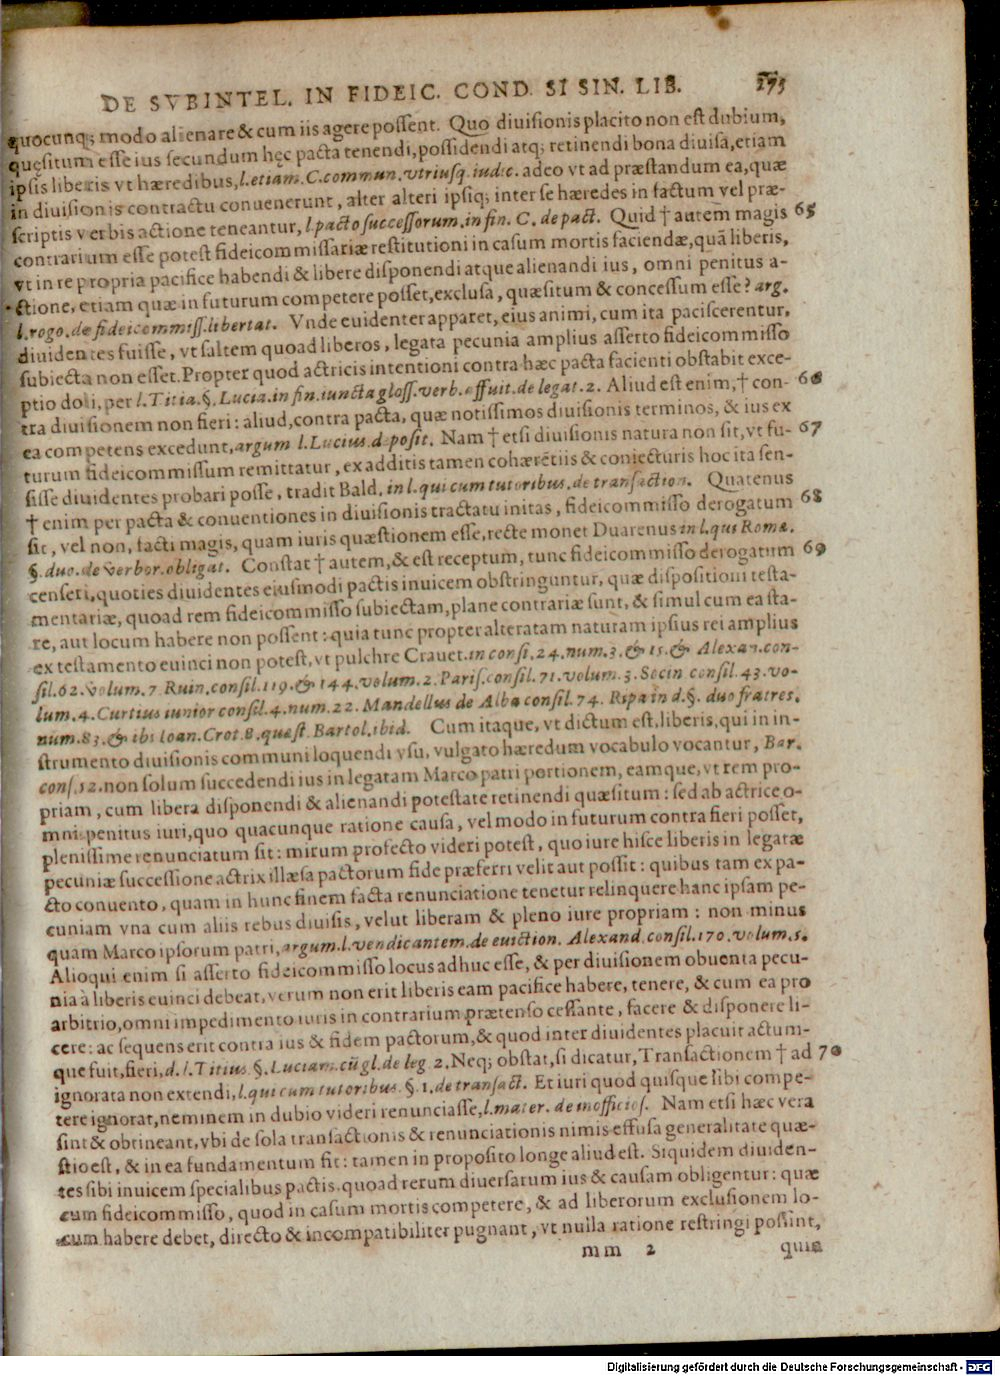 DE SVBINTEL. IN FIDEIC. COND. SI SIN. LIB. 275
quocunq; modo alienare & cum iis agere possent. Quo diuisionis placito non est dubium,
quęsitum esse ius secundum hęc pacta tenendi, possidendi atq; retinendi bona diuisa, etiam
ipsis liberis vt hæredibus, l. etiam. C. commun. vtriusq. iudic. adeo vt ad præstandum ea, quæ
in diuisionis contractu conuenerunt, alter alteri ipsiq; inter se hæredes in factum vel præ-
scriptis verbis actione teneantur, l. pacto successorum. in fin. C. de pact. Quid † autem magis 65
contrarium esse potest fideicommissariæ restitutioni in casum mortis faciendæ, quā liberis,
vt in re propria pacifice habendi & libere disponendi atque alienandi ius, omni penitus a-
ctione, etiam quæ in futurum competere posset, exclusa, quæsitum & concessum esse? arg.
l. rogo. de fideicommiss. libertat. Vnde euidenter apparet, eius animi, cum ita paciscerentur,
diuidentes fuisse, vt saltem quoad liberos, legata pecunia amplius asserto fideicommisso
subiecta non esset. Propter quod actricis intentioni contra hæc pacta facienti obstabit exce-
ptio doli, per l. Titia. §. Lucia. in fin. iuncta gloss. verb. effuit. de legat. 2. Aliud est enim, † con- 66
tra diuisionem non fieri: aliud, contra pacta, quæ notissimos diuisionis terminos, & ius ex
ea competens excedunt, argum l. Lucius. deposit. Nam † etsi diuisionis natura non sit, vt fu- 67
turum fideicommissum remittatur, ex additis tamen cohærētiis & coniecturis hoc ita sen-
sisse diuidentes probari posse, tradit Bald. in l. qui cum tutoribus. de transaction. Quatenus
† enim per pacta & conuentiones in diuisionis tractatu initas, fideicommisso derogatum 68
sit, vel non, facti magis, quam iuris quæstionem esse, recte monet Duarenus in l. qui Romæ.
§. duo. de verbor. obligat. Constat † autem, & est receptum, tunc fideicommisso derogatum 69
censeri, quoties diuidentes eiusmodi pactis inuicem obstringuntur, quæ dispositioni testa-
mentariæ, quoad rem fideicommisso subiectam, plane contrariæ sunt, & simul cum ea sta-
re, aut locum habere non possent: quia tunc propter alteratam naturam ipsius rei amplius
ex testamento euinci non potest, vt pulchre Crauet. in consi. 24. num. 3. & 15. & Alexan. con-
sil. 62. volum. 7. Ruin. consil. 119. & 144. volum. 2. Paris. consil. 71. volum. 3. Socin consil. 43. vo-
lum. 4. Curtius iunior consil. 4. num. 22. Mandellus de Alba consil. 74. Ripa in d. §. duo fratres.
num. 83. & ibi Ioan. Crot. 8. quæst. Bartol. ibid. Cum itaque, vt dictum est, liberis, qui in in-
strumento diuisionis communi loquendi vsu, vulgato hæredum vocabulo vocantur, Bar.
cons. 12. non solum succedendi ius in legatam Marco patri portionem, eamque, vt rem pro-
priam, cum libera disponendi & alienandi potestate retinendi quæsitum: sed ab actrice o-
mni penitus iuri, quo quacunque ratione causa, vel modo in futurum contra fieri posset,
plenissime renunciatum sit: mirum profecto videri potest, quo iure hisce liberis in legatæ
pecuniæ successione actrix illæsa pactorum fide præferri velit aut possit: quibus tam ex pa-
cto conuento, quam in hunc finem facta renunciatione tenetur relinquere hanc ipsam pe-
cuniam vna cum aliis rebus diuisis, velut liberam & pleno iure propriam: non minus
quam Marco ipsorum patri, argum. l. vendicantem. de euiction. Alexand. consil. 170. volum. 5.
Alioqui enim si asserto fideicommisso locus adhuc esse, & per diuisionem obuenta pecu-
nia à liberis euinci debeat, verum non erit liberis eam pacifice habere, tenere, & cum ea pro
arbitrio, omni impedimento iuris in contrarium prætenso cessante, facere & disponere li-
cere: ac sequens erit contra ius & fidem pactorum, & quod inter diuidentes placuit actum-
que fuit, fieri, d. l. Titius. §. Luciam. cū gl. de leg. 2. Neq; obstat, si dicatur, Transactionem † ad 70
ignorata non extendi, l. qui cum tutoribus. §. 1. de transact. Et iuri quod quisque sibi compe-
tere ignorat, neminem in dubio videri renunciasse, l. mater. de inofficios. Nam etsi hæc vera
sint & obtineant, vbi de sola transactionis & renunciationis nimis effusa generalitate quæ-
stio est, & in ea fundamentum sit: tamen in proposito longe aliud est. Siquidem diuiden-
tes sibi inuicem specialibus pactis, quoad rerum diuersarum ius & causam obligentur: quæ
cum fideicommisso, quod in casum mortis competere, & ad liberorum exclusionem lo-
cum habere debet, directo & incompatibiliter pugnant, vt nulla ratione restringi possint,
mm 2 quia
Digitalisierung gefördert durch die Deutsche Forschungsgemeinschaft - DFG